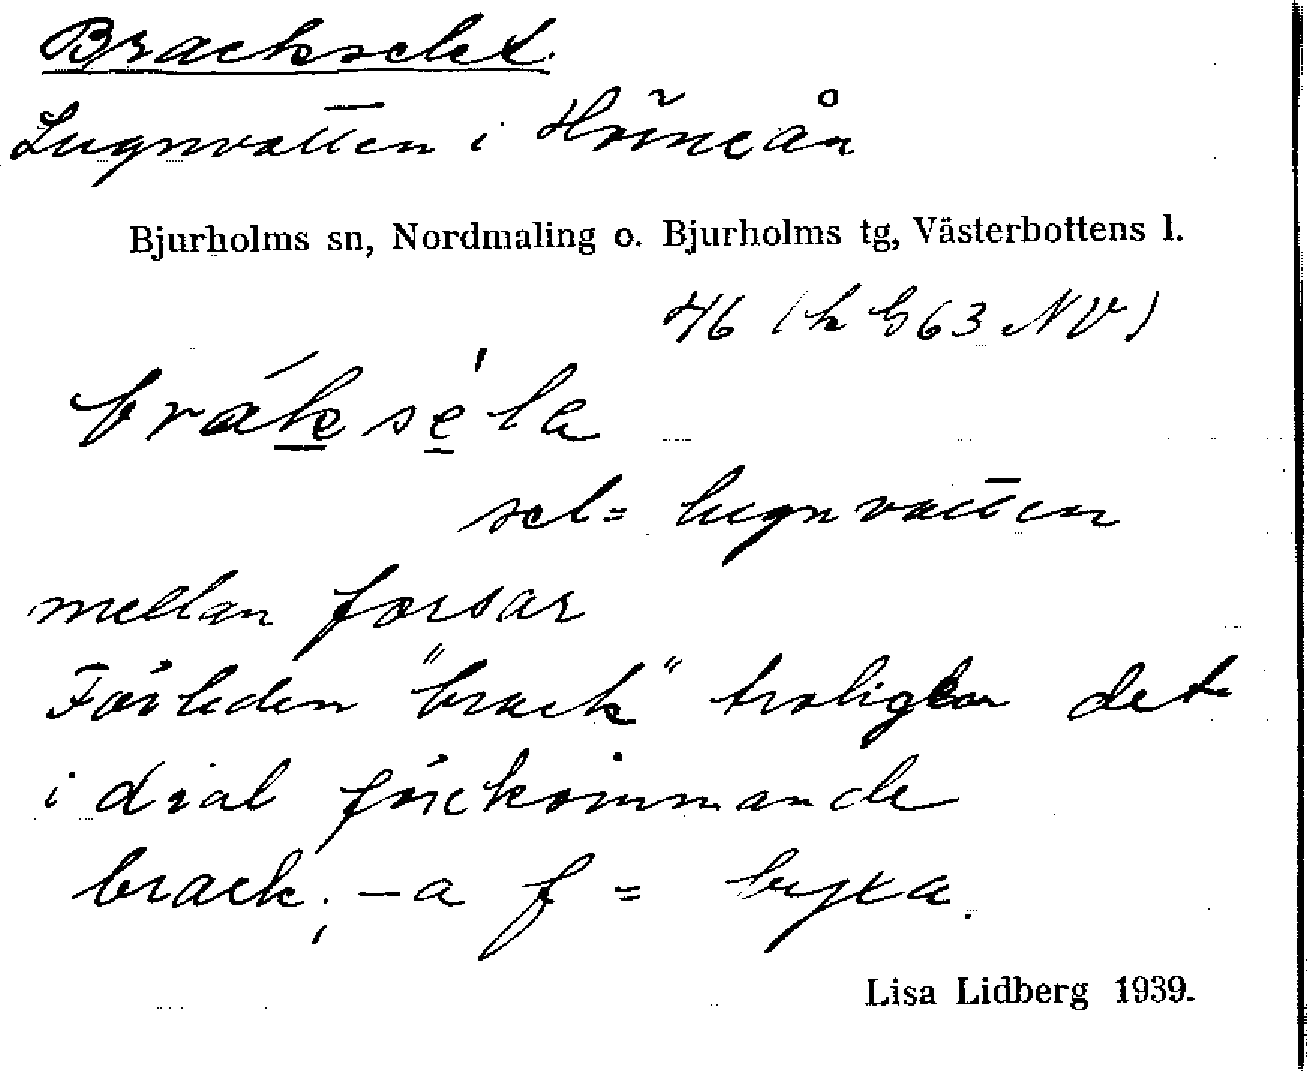 Brackselet.
Lugnvatten i Hörneån
Bjurholms sn, Nordmaling o. Bjurholms tg, Västerbottens l.
46 (h G 63 NV)
brák̲sè̲'la
sel = lugnvatten
mellan forsar
Förleden "brack" troligen det
i dial förekommande
brack; –a f = byxa.
Lisa Lidberg 1939.